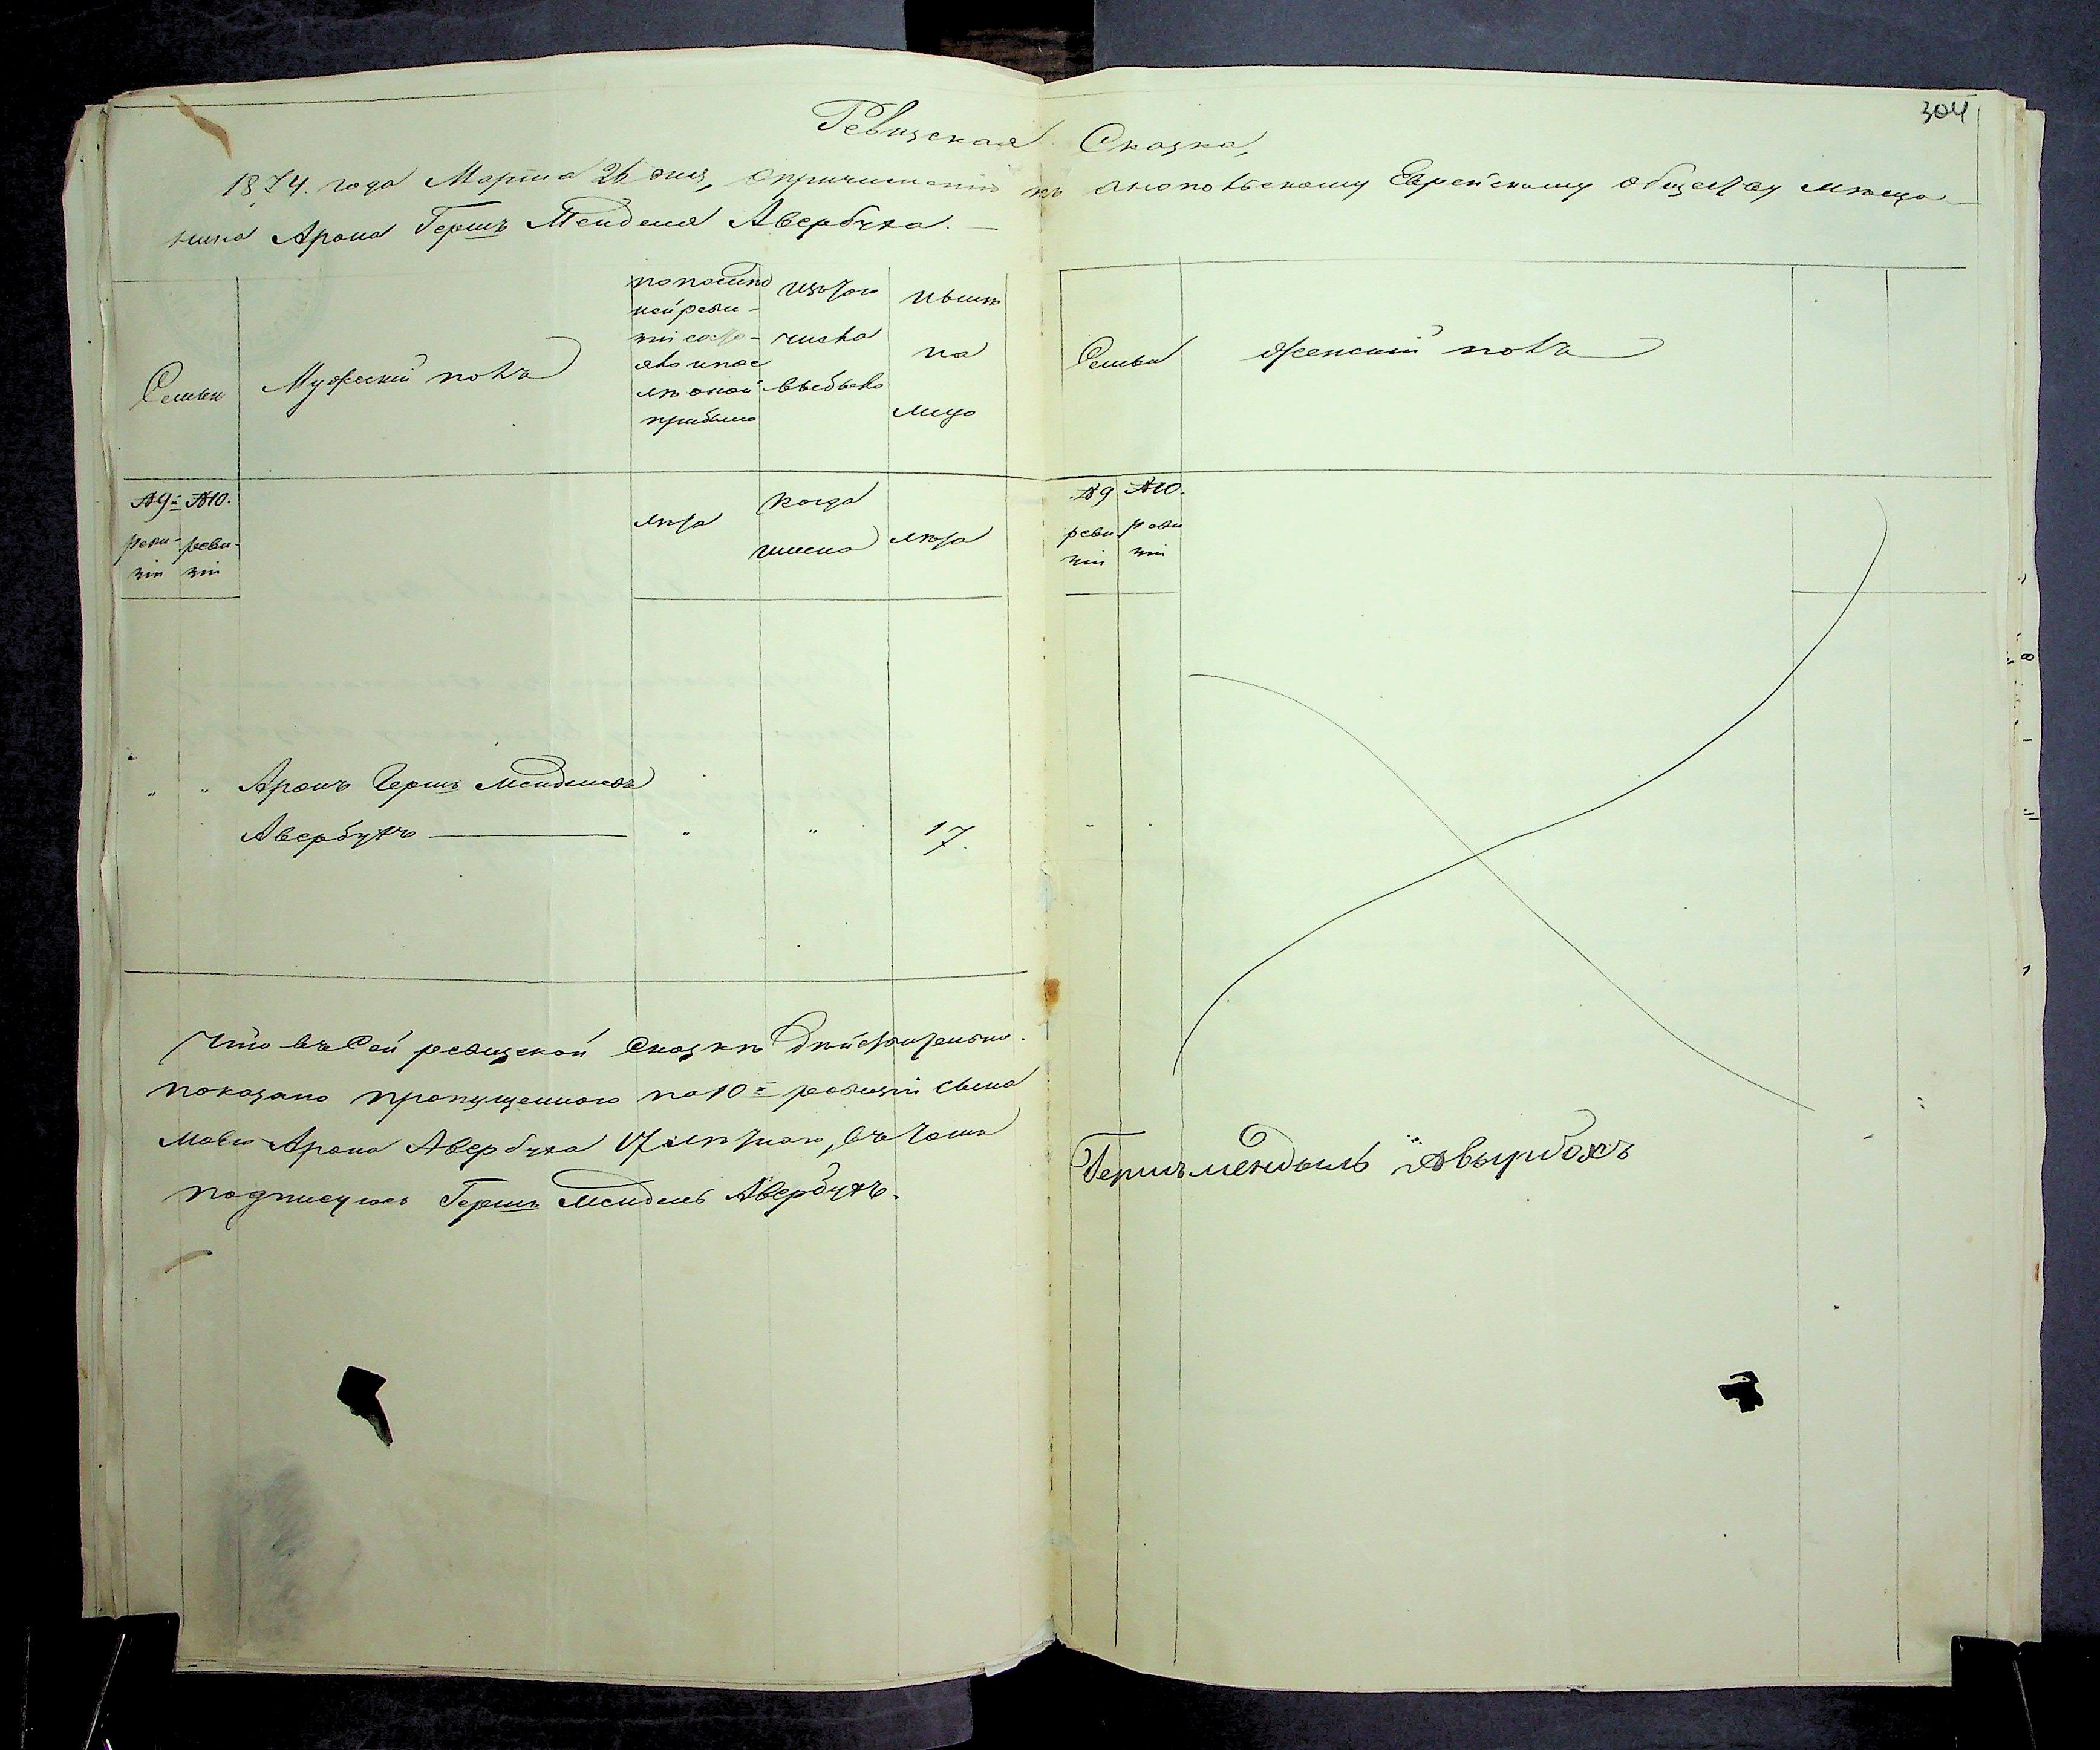 304
Ревизская Сказка,
1874. года Марта 26 дня, опричислении къ Анопольскому Еврейскому обществу мѣща-
нина Арона Гершъ Менделя Авербуха. —
Семьи
Мужескій полъ
попослѣд
ней реви-
зіи состо-
яло ипос
лѣ оной
прибыло
изъ того
числа
выбыло
Нынѣ
на
лицо
Семьи
Женскій полъ
№9й №10.
реви- реви-
зіи зіи
лѣта
когда
имено
лѣта
№9 №10.
реви реви
зіи зіи
" " Аронъ Гершъ Менделевъ
Авербухъ — " " 17.
Что въ Сей ревизской Сказкѣ дѣйствительно
показано пропущенного по 10й ревизіи сына
моего Арона Авербуха 17 лѣтного, въ томъ
подписуюсь Гершъ Мендель Авербухъ.
Гершъ мендыль Авырбохъ